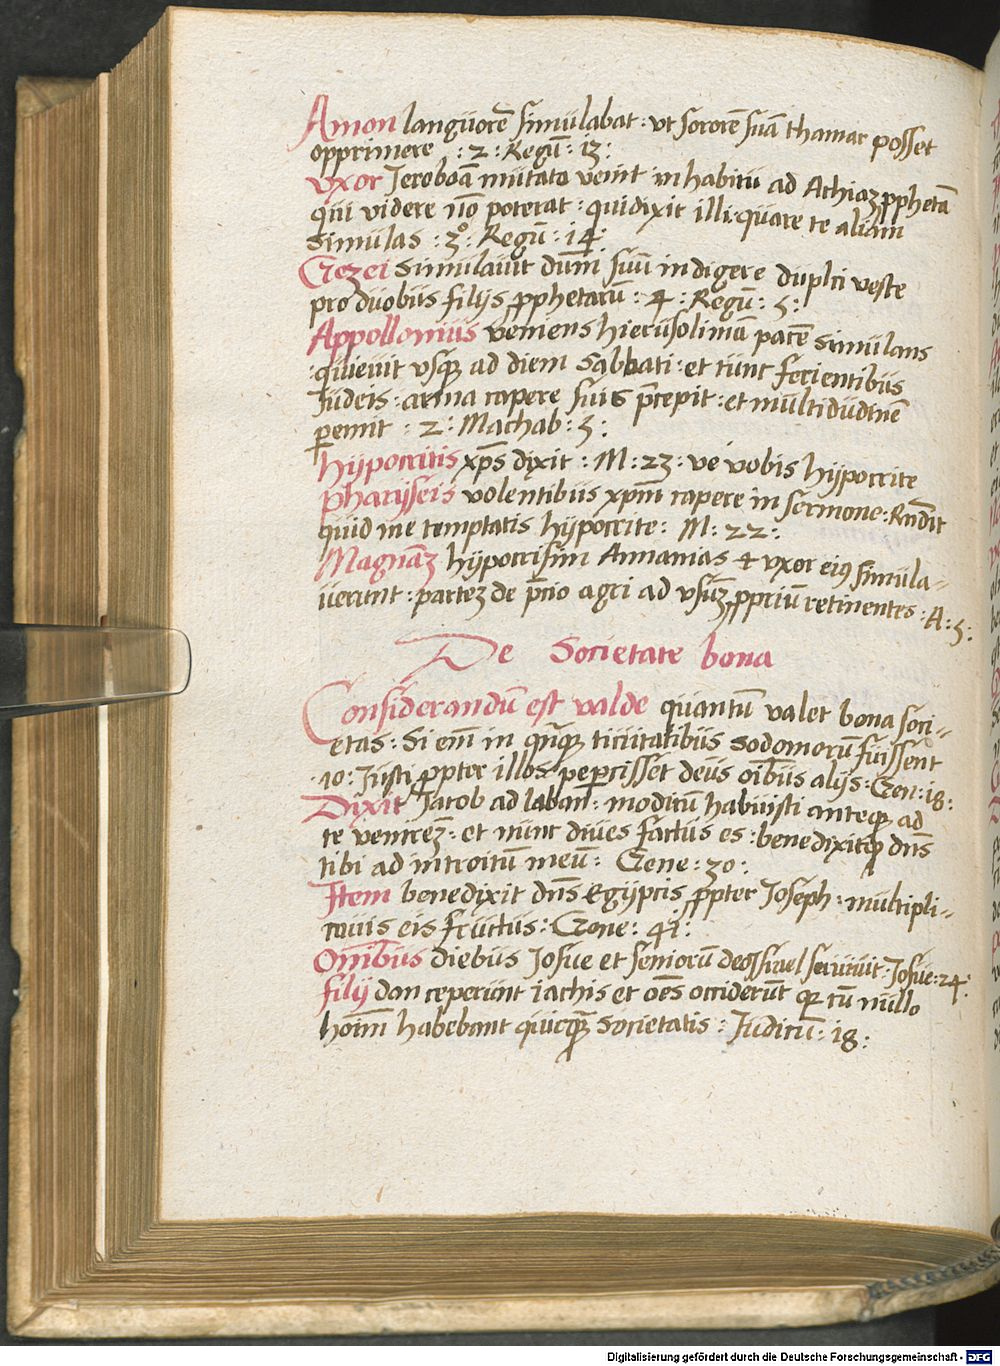 Amon langüorē simülabat : vt sororē süā thamar posset
opprimere : 2 : Regū : 13 :
vxor Jeroboā mütato venit in habitü ad Achiaz pphetā
qüi videre nō poterat : qui dixit illi : qüare te aliam
simülas : 3° : Regū : 14 :
Gezei simülauit dūm süü indigere duplci veste
pro düobüs filijs pphetarū : 4 : Regū : 5 :
Appollonius veniens hierüsolimā pacē simülans
qüieuit vsqz ad diem Sabbati : et tünc ferientibüs
Jüdeis : arma capere süis pcepit : et mültidüdinē
pemit : 2 : Machab : 5 :
Hijpocritis xps dixit : M : 23 : ve vobis hijpocrite
Pharijseis volentibüs xpm capere in sermone : Rndit
qüid me temptatis hijpocrite : M : 22 :
Magnāz hijpocrisim Annanias & vxor ei9 simüla-
üerünt : partez de pcio agri ad vsūz ppriū retinentes : A : 5 :
De Societate bona
Considerandū est valde qüantū valet bona soci-
etas : Si em in qnqz ciüitatibüs Sodomorū füissent
10 : Jüsti ppter illos pepercisset deüs oībüs alijs : Gen : 18 :
Dixit Jacob ad laban : modicū habüisti anteqz ad
te venirez : et nünc diües factüs es : benedixitqz dns
tibi ad introitū meū : Gene : 30 :
Item benedixit dns Egijptis ppter Joseph : mültipli-
cauis eis früctüs : Gene : 41 :
Omībüs diebüs Josüe et seniorū deo Israel seruiuit : Josüe : 24 :
filij dan ceperünt iachis et oēs occiderūt qz cū nüllo
hoīm habebant qüicqz Societatis : Jüdicū : 18 :
Digitalisierung gefördert durch die Deutsche Forschungsgemeinschaft - DFG